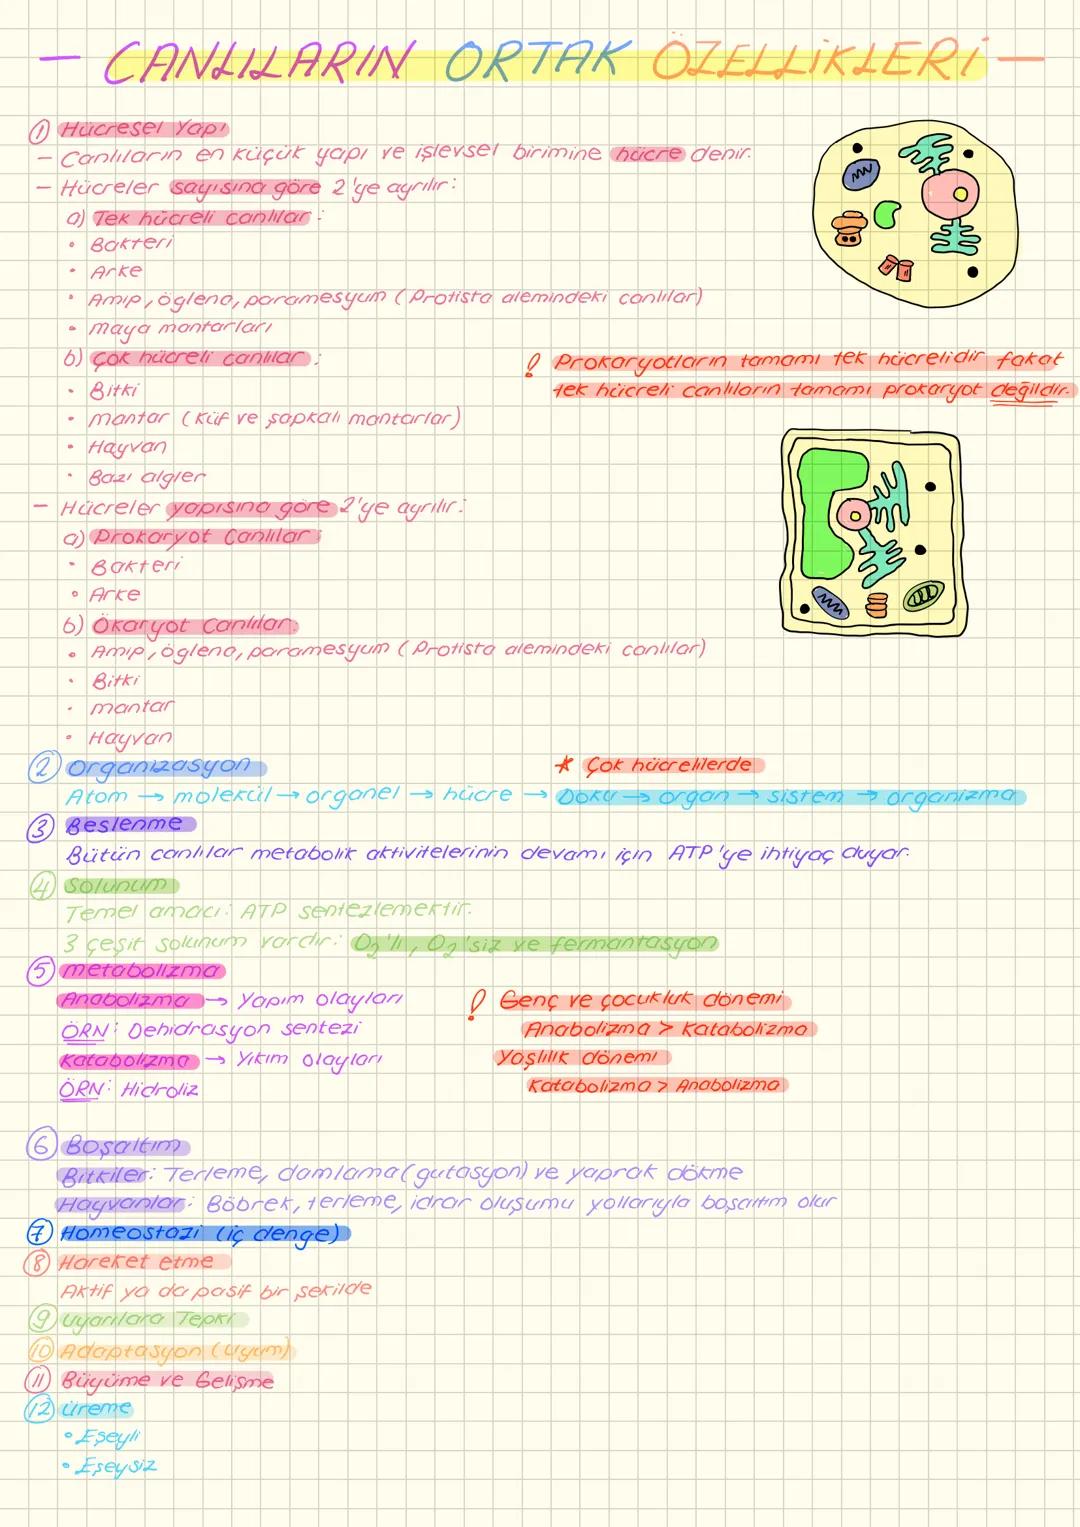 — CANLILARIN ORTAK ÖZELLİKLERİ —
① Hücresel Yapı
— Canlıların en küçük yapı ve işlevsel birimine hücre denir.
— Hücreler sayısına göre 2'ye ayrılır:
a) Tek hücreli canlılar:
• Bakteri
• Arke
• Amip, öglena, paramesyum (Protista alemindeki canlılar)
• maya mantarları
b) Çok hücreli canlılar:
• Bitki
• mantar (Küf ve şapkalı mantarlar)
• Hayvan
• Bazı algler
! Prokaryotların tamamı tek hücrelidir fakat
tek hücreli canlıların tamamı prokaryot değildir.
— Hücreler yapısına göre 2'ye ayrılır:
a) Prokaryot Canlılar:
• Bakteri
• Arke
b) Ökaryot Canlılar:
• Amip, öglena, paramesyum (Protista alemindeki canlılar)
• Bitki
• mantar
• Hayvan
② Organizasyon
* Çok hücrelilerde
Atom → molekül → organel → hücre → Doku → organ → sistem → organizma
③ Beslenme
Bütün canlılar metabolik aktivitelerinin devamı için ATP'ye ihtiyaç duyar.
④ Solunum
Temel amacı: ATP sentezlemektir.
3 çeşit solunum vardır: O₂'li, O₂'siz ve fermantasyon
⑤ metabolizma
Anabolizma → Yapım olayları
ÖRN: Dehidrasyon sentezi
Katabolizma → Yıkım olayları
ÖRN: Hidroliz
! Genç ve çocukluk dönemi
Anabolizma > Katabolizma
Yaşlılık dönemi
Katabolizma > Anabolizma
⑥ Boşaltım
Bitkiler: Terleme, damlama (gutasyon) ve yaprak dökme
Hayvanlar: Böbrek, terleme, idrar oluşumu yollarıyla boşaltım olur
⑦ Homeostazi (iç denge)
⑧ Hareket etme
Aktif ya da pasif bir şekilde
⑨ uyarılara Tepki
⑩ Adaptasyon (Uyum)
⑪ Büyüme ve Gelişme
⑫ üreme
• Eşeyli
• Eşeysiz